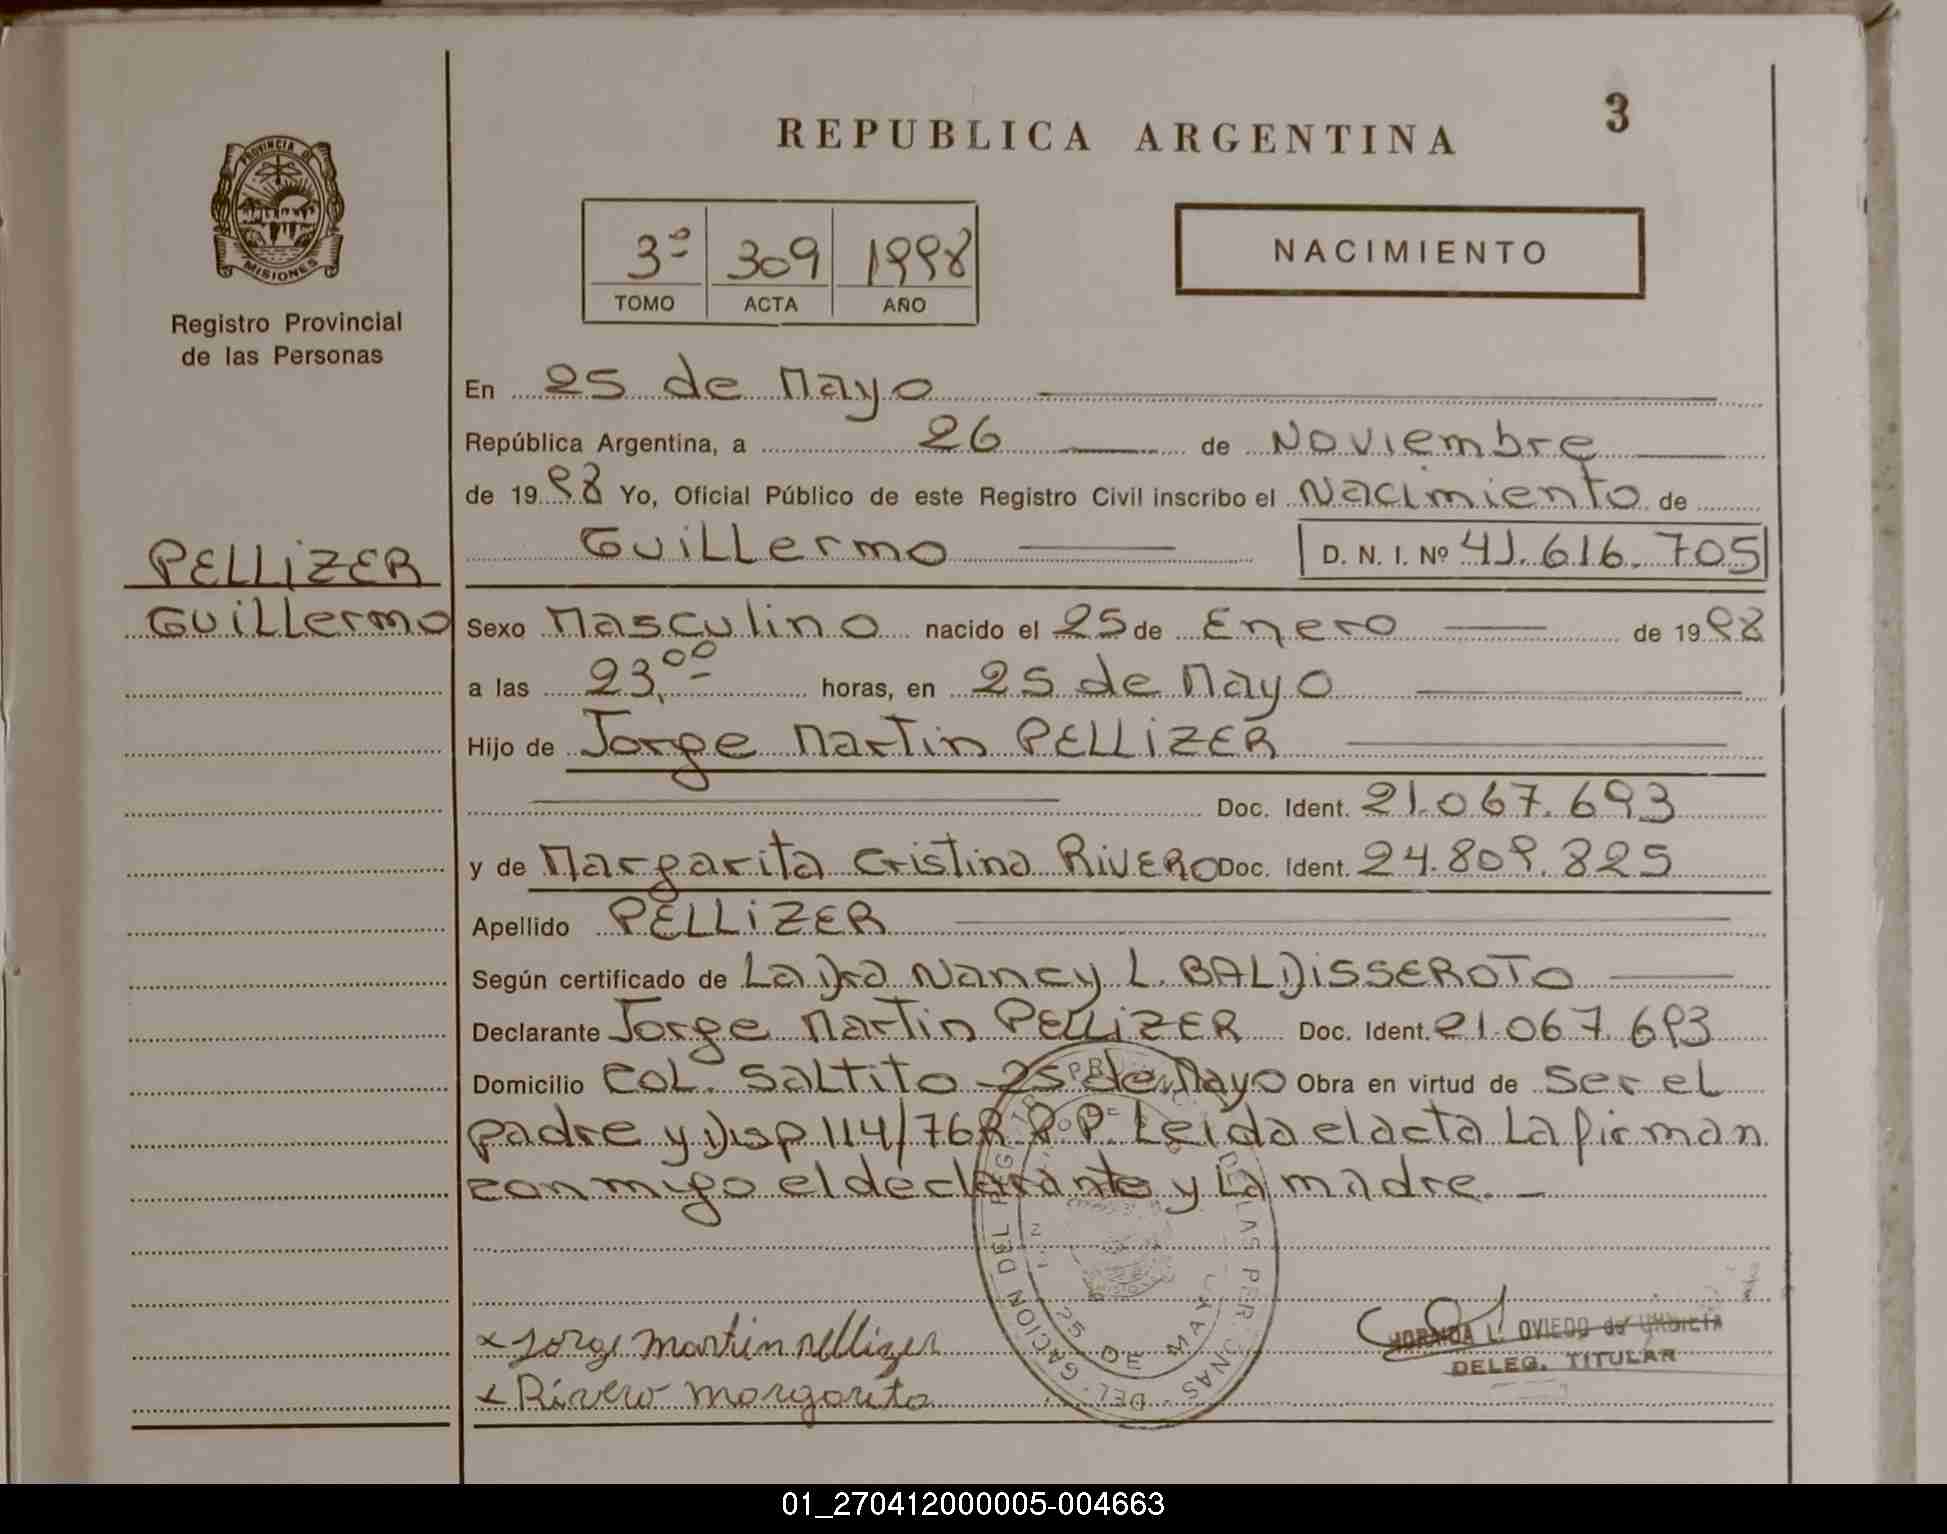 REPUBLICA ARGENTINA
3
PROVINCIA DE
MISIONES
Registro Provincial
de las Personas
3º 309 1998
TOMO ACTA AÑO
NACIMIENTO
En 25 de Mayo
República Argentina, a 26 de Noviembre
de 1998 Yo, Oficial Público de este Registro Civil inscribo el Nacimiento de
Guillermo D. N. I. Nº 41.616.705
PELLIZER
Guillermo
Sexo Masculino nacido el 25 de Enero de 1998
a las 23,00 horas, en 25 de Mayo
Hijo de Jorge Martin PELLIZER
Doc. Ident. 21.067.693
y de Margarita Cristina RIVERO Doc. Ident. 24.809.825
Apellido PELLIZER
Según certificado de La Dra Nancy L. BALDISSEROTO
Declarante Jorge Martin PELLIZER Doc. Ident. 21.067.693
Domicilio COL. Saltito 25 de Mayo Obra en virtud de Ser el
padre y Disp 114/76 R.P.P. Leida el acta La firman
conmigo el declarante y La madre.
x Jorge Martin Pellizer
x Rivero Margarita
25 DE MAYO
L. OVIEDO de
DELEG. TITULAR
01_270412000005-004663